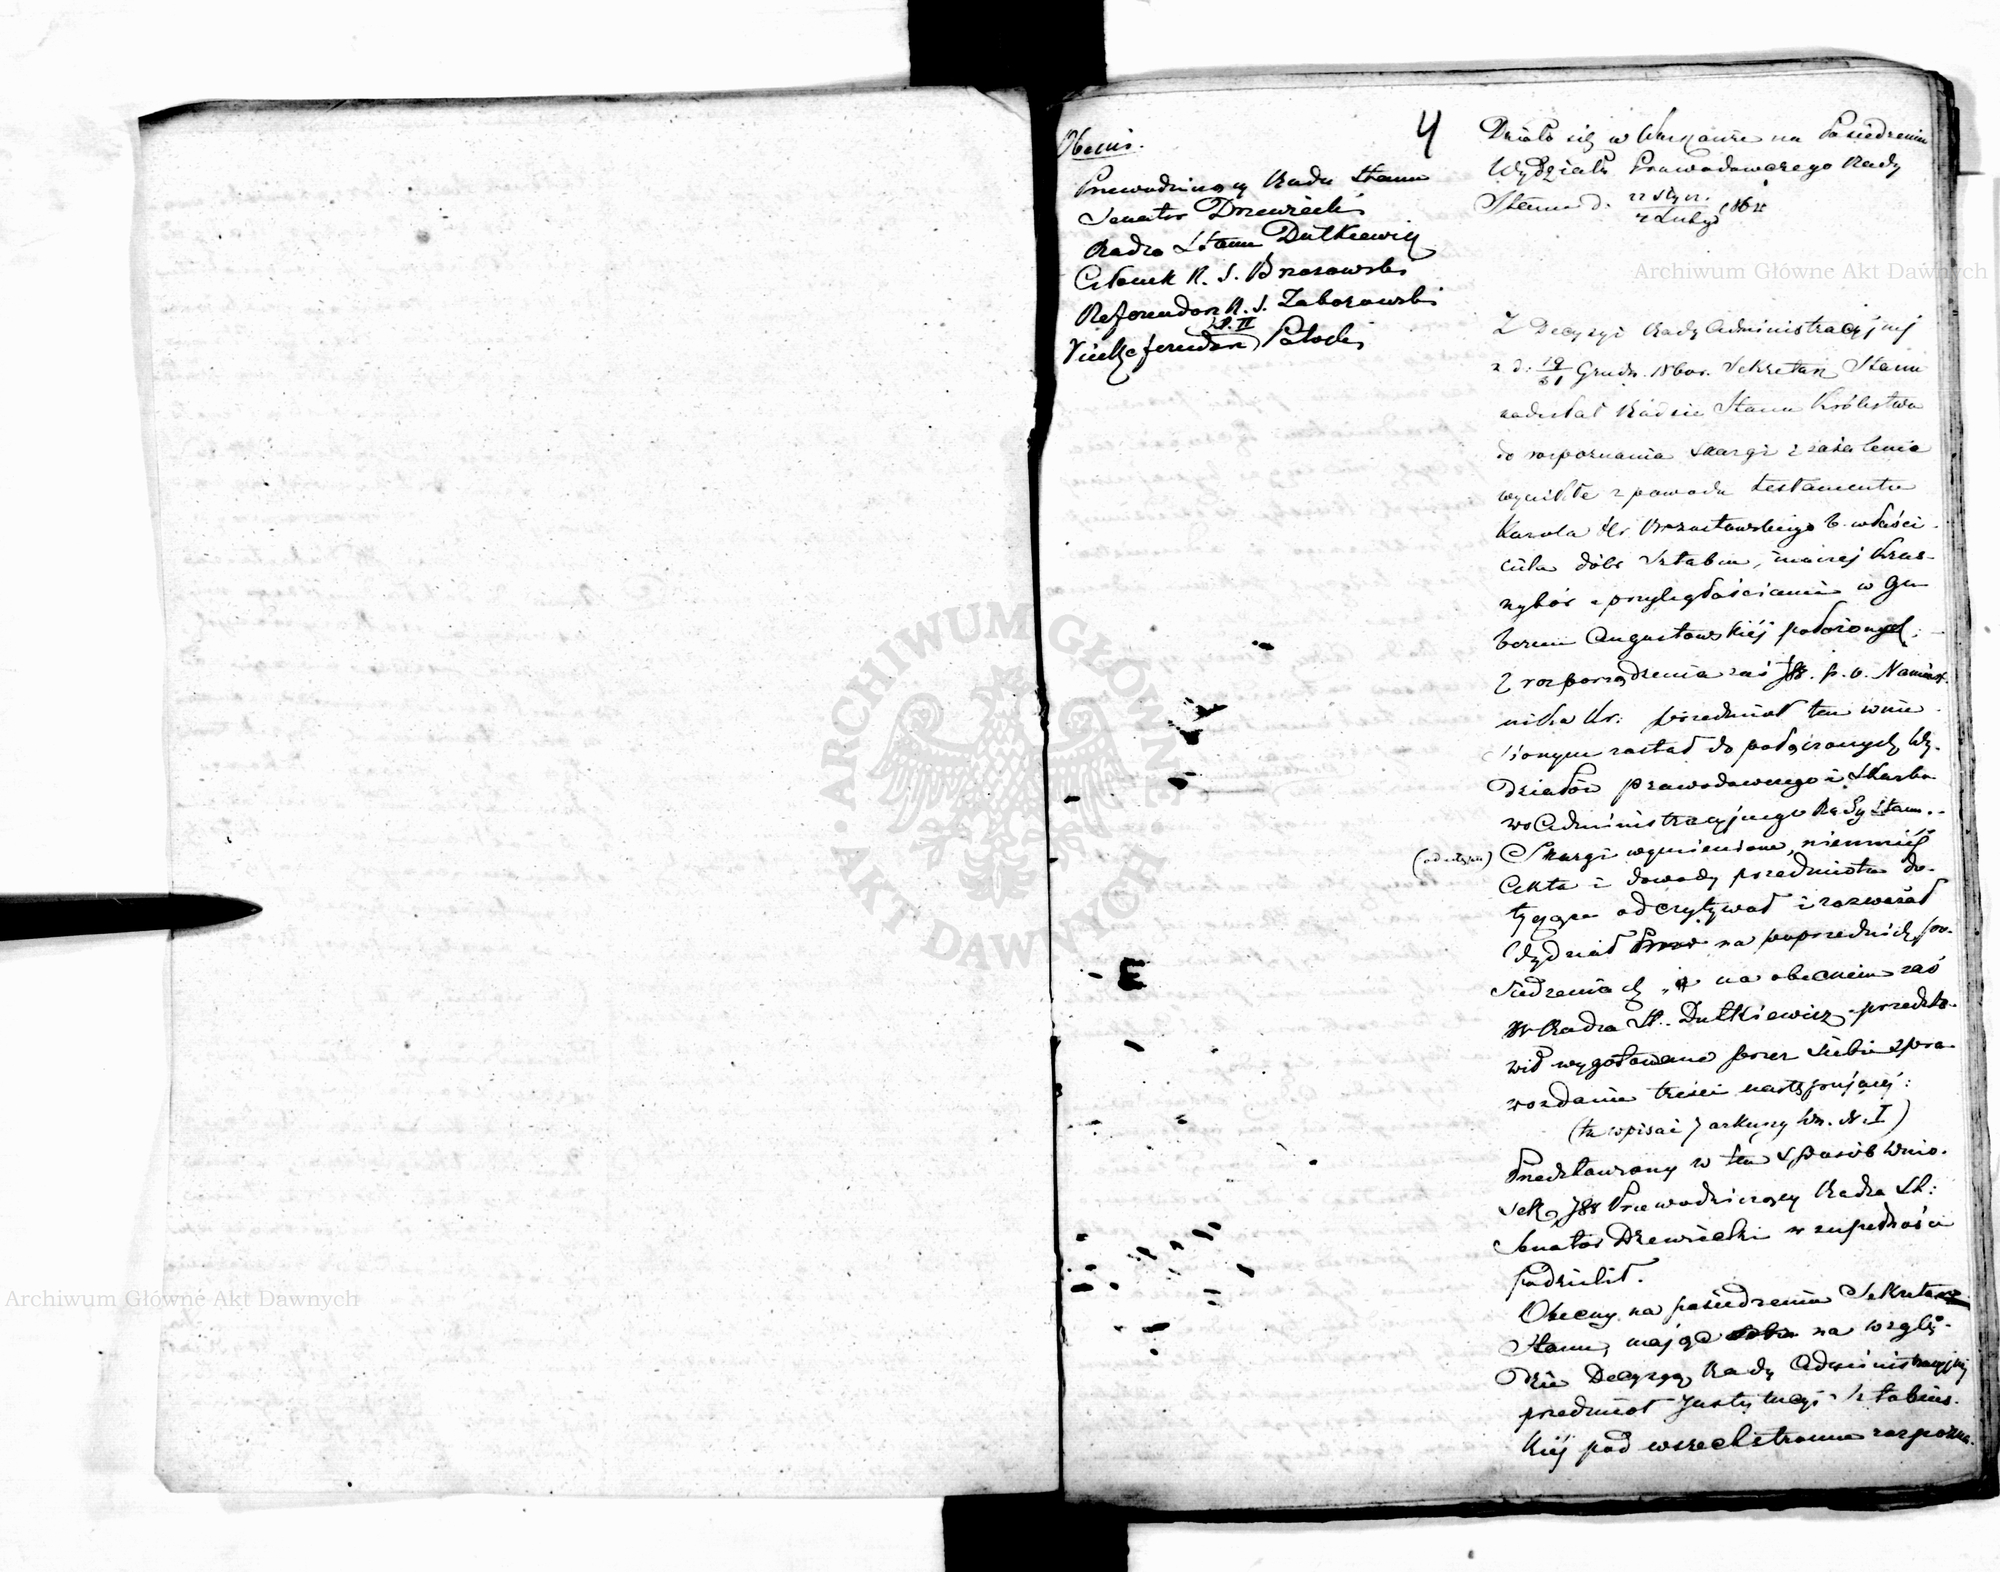 4
Obecni.
Przewodniczący Radca Stanu
Senator Drzewiecki
Radca Stanu Dutkiewicz
Członek R. S. Brzozowski
Referendarz R. S. Zaborowski
Vice Referendarz Potocki
Działo się w Warszawie na Posiedzeniu
Wydziału Prawodawczego Rady
Stanu d. 22 Stycz. / Lutego 186
Archiwum Główne Akt Dawnych
Z Decyzyi Rady Administracyjnej
z d: 19/31 Grudn. 1860 r. Sekretarz Stanu
nadesłał Radzie Stanu Królestwa
do rozpoznania skargi i zażalenia
wynikłe z powodu testamentu
Karola Hr. Brzostowskiego b. właści-
ciela dóbr Sztabin, inaczej Kras-
nybór z przyległościami w Gu-
bernii Augustowskiej położonych;
Z rozporządzenia zaś JW. p. o. Namiest-
nika Kr: przedmiot ten wnie-
sionym został do połączonych Wy-
działów Prawodawczego i Skarbo-
wo Administracyjnego Rady Stanu.-
Skargi wymienione, niemniej
Akta i dowody przedmiotu do-
tyczące odczytywał i rozważał
Wydział na poprzednich po-
siedzeniach, na obecnem zaś
W Radca St. Dutkiewicz przedsta-
wił wygotowane przez siebie spra-
wozdanie treści następującej:
(tu wpisać 7 arkuszy Nr. I)
Przedstawiony w ten sposób wnio-
sek JW Przewodniczący Radca St:
Senator Drzewiecki w zupełności
podzielił.
Obecny na posiedzeniu Sekretarz
Stanu, mając na wzglę-
dzie Decyzyą Rady Administracyjnej
przedmiot Instytucyi Sztabińs-
kiej pod wszechstronne rozpozna-
ARCHIWUM GŁÓWNE • AKT DAWNYCH •
Archiwum Główne Akt Dawnych